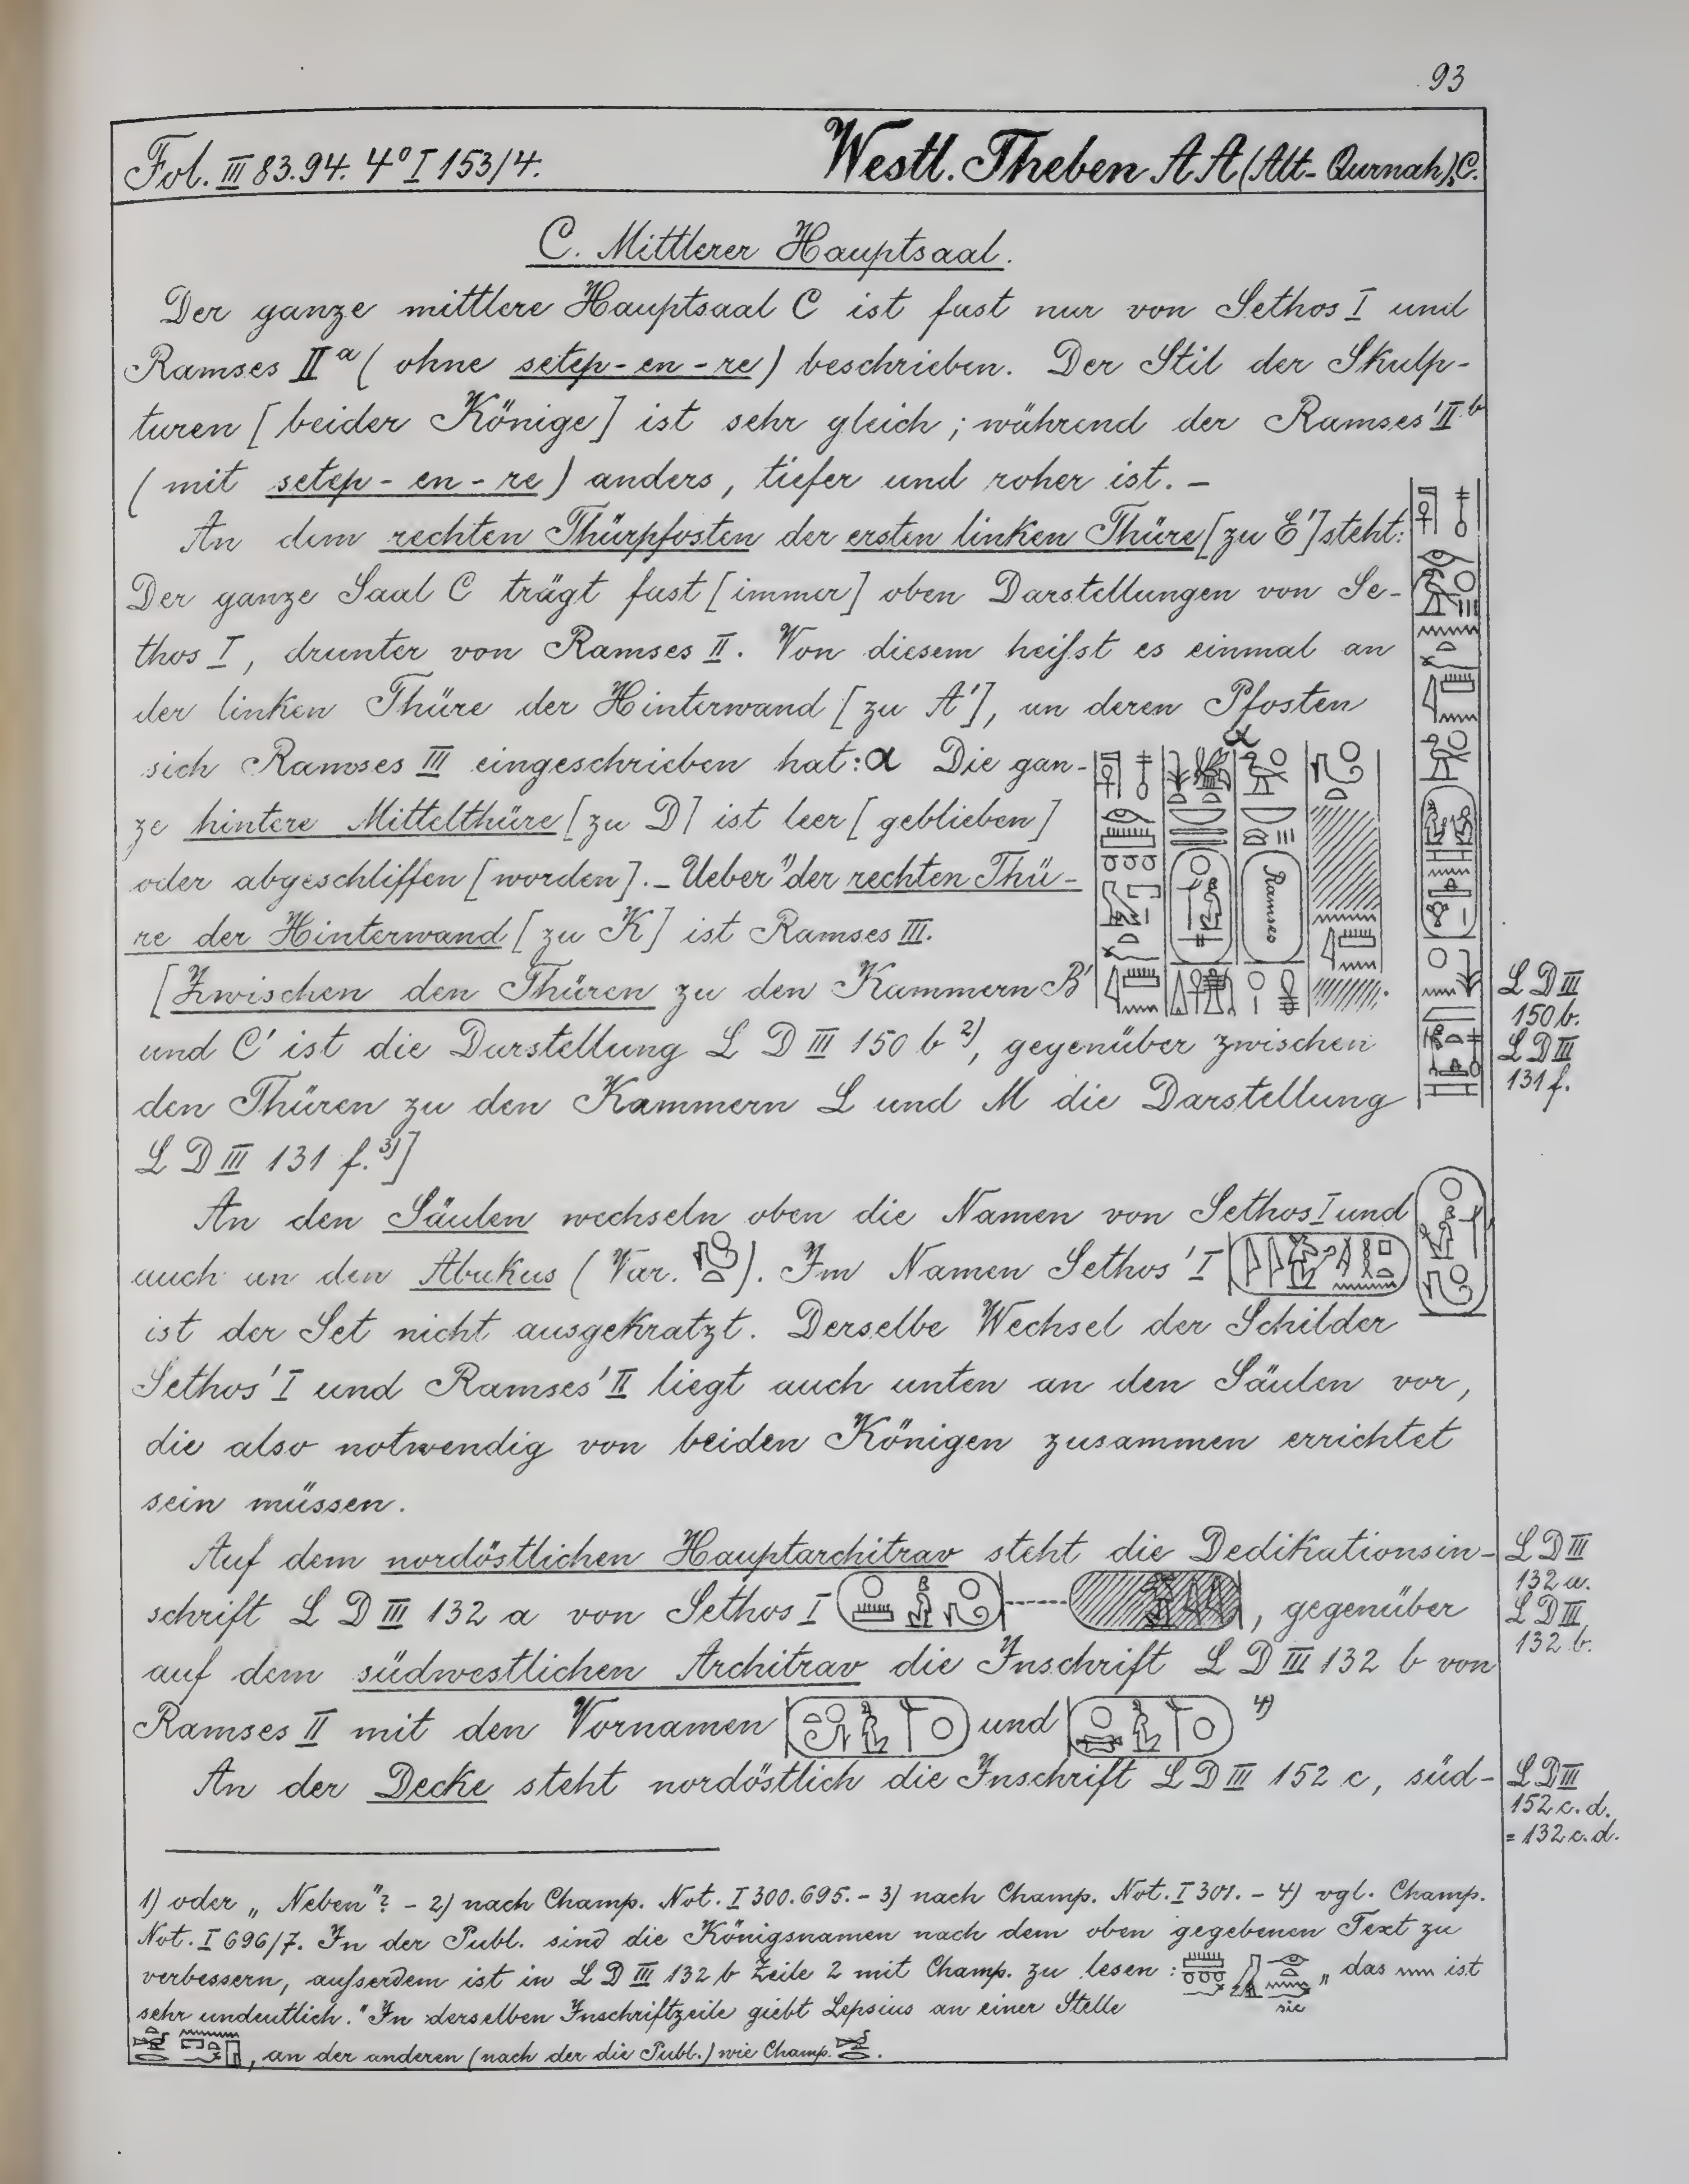 93
Fol. III 83.94. 4° I 153/4. Westl. Theben A A (Alt-Qurnah), C.
C. Mittlerer Hauptsaal.
Der ganze mittlere Hauptsaal C ist fast nur von Sethos I und
Ramses IIa (ohne setep-en-re) beschrieben. Der Stil der Skulp-
turen [beider Könige] ist sehr gleich; während der Ramses' IIb
(mit setep-en-re) anders, tiefer und roher ist. –
An dem rechten Thürpfosten der ersten linken Thüre [zu E'] steht:
Der ganze Saal C trägt fast [immer] oben Darstellungen von Se-
thos I, drunter von Ramses II. Von diesem heifst es einmal an
der linken Thüre der Hinterwand [zu A'], an deren Pfosten
sich Ramses III eingeschrieben hat: α Die gan-
α
ze hintere Mittelthüre [zu D] ist leer [geblieben]
oder abgeschliffen [worden]. – Ueber 1) der rechten Thü-
Ramses
re der Hinterwand [zu K] ist Ramses III.
[Zwischen den Thüren zu den Kammern B'
und C' ist die Darstellung L D III 150 b 2), gegenüber zwischen
den Thüren zu den Kammern L und M die Darstellung
L D III 131 f. 3)]
L D III
150 b.
L D III
131 f.
An den Säulen wechseln oben die Namen von Sethos I und
auch an den Abakus (Var. ). Im Namen Sethos' I
ist der Set nicht ausgekratzt. Derselbe Wechsel der Schilder
Sethos' I und Ramses' II liegt auch unten an den Säulen vor,
die also notwendig von beiden Königen zusammen errichtet
sein müssen.
Auf dem nordöstlichen Hauptarchitrav steht die Dedikationsin-
schrift L D III 132 a von Sethos I ------ , gegenüber
auf dem südwestlichen Architrav die Inschrift L D III 132 b von
Ramses II mit den Vornamen und 4)
L D III
132 a.
L D III
132 b.
An der Decke steht nordöstlich die Inschrift L D III 152 c, süd-
L D III
152 c. d.
= 132 c. d.
1) oder „Neben"? – 2) nach Champ. Not. I 300. 695. – 3) nach Champ. Not. I 301. – 4) vgl. Champ.
Not. I 696/7. In der Publ. sind die Königsnamen nach dem oben gegebenen Text zu
verbessern, aufserdem ist in L D III 132 b Zeile 2 mit Champ. zu lesen: „das ist
sic
sehr undeutlich." In derselben Inschriftzeile giebt Lepsius an einer Stelle
, an der anderen (nach der die Publ.) wie Champ. .